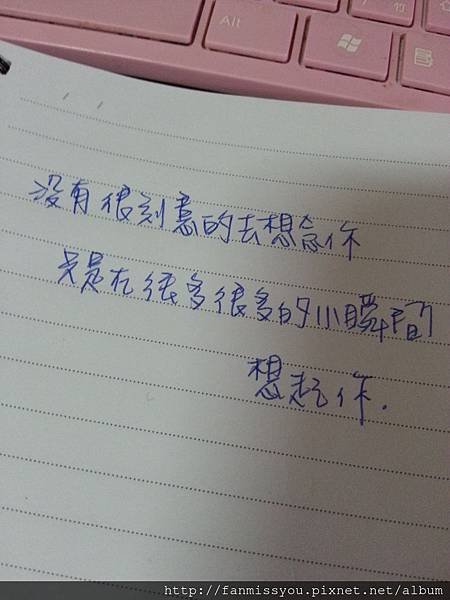 Alt
竹
沒有很刻意的去想念你
只是在很多很多的小瞬間
想起你.
http://fanmissyou.pixnet.net/album